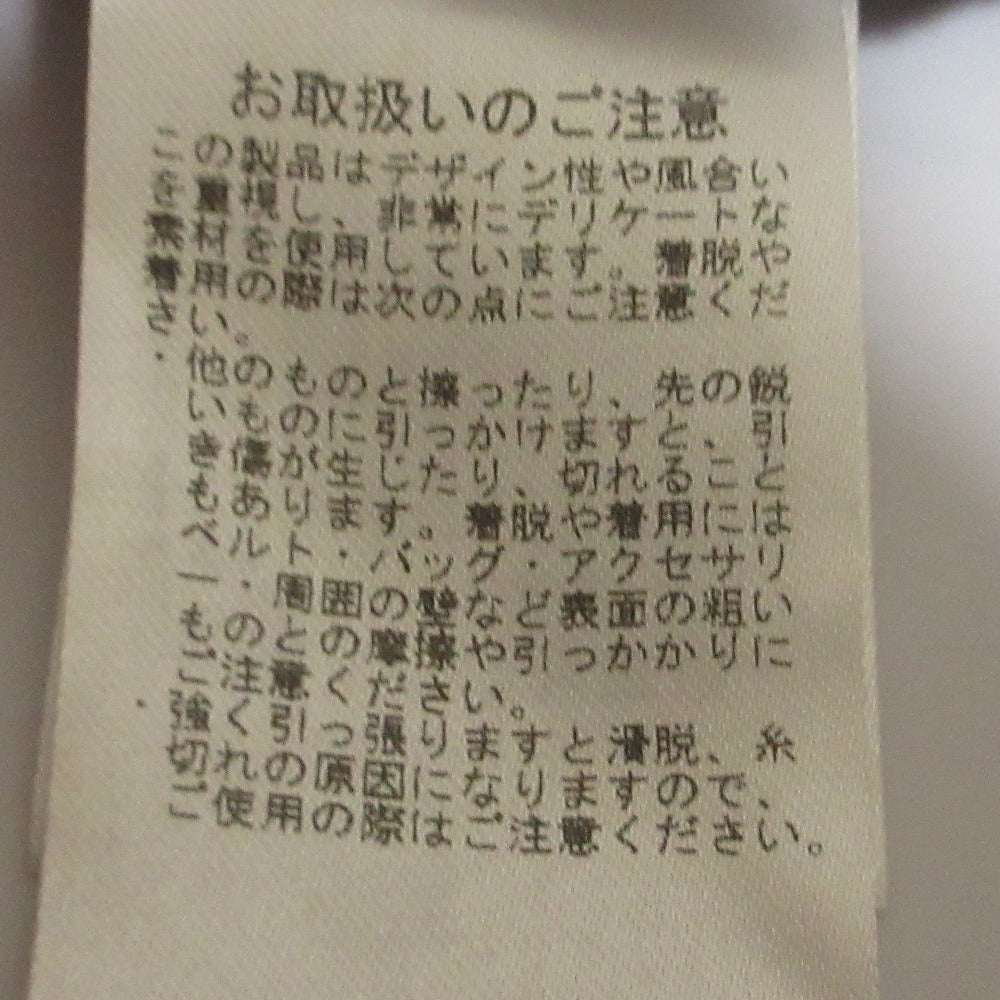 お取扱いのご注意
この製品はデザイン性や風合い
を重視し、非常にデリケートな
素材を使用しています。着脱や
着用の際は次の点にご注意くだ
さい。
・他のものと擦ったり、先の鋭
いものに引っかけますと、引
きも傷が生じたり、切れること
もあります。着脱や着用には
ベルト・バッグ・アクセサリ
ー・周囲の壁など表面の粗い
ものとの摩擦や引っかかりに
ご注意ください。
・強く引っ張りますと滑脱、糸
切れの原因になりますので、
ご使用の際はご注意ください。